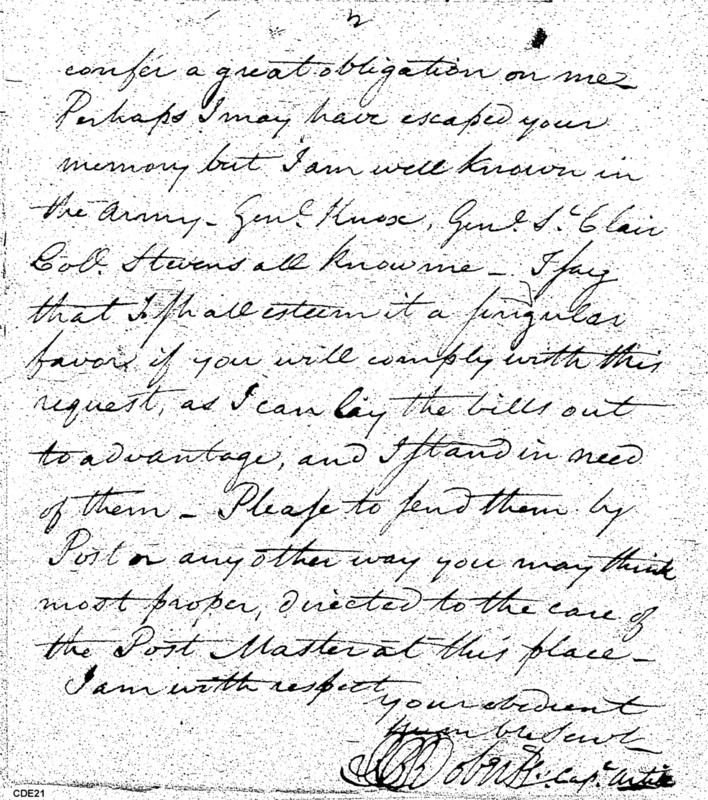 2
confer a great obligation on me
Perhaps I may have escaped your
memory but I am well known in
the Army - Genl. Knox, Genl. St. Clair
Coll. Stevens all know me - I say
that I shall esteem it a singular
favor if you will comply with this
request, as I can lay the bills out
to advantage, and I stand in need
of them - Please to send them by
Post or any other way you may think
most proper, directed to the care of
the Post Master at this place -
I am with respect
your obedient
humble Servt
Roberts. Capt. Artil
CDE21